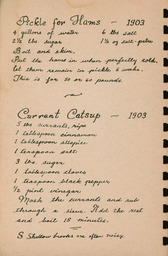 Pickle for Hams — 1903
4 gallons of water 6 lbs salt
2½ lbs sugar 1½ oz salt-petre
Boil and skim.
Put the hams in when perfectly cold,
let them remain in pickle 6 weeks.
This is for 50 or 60 pounds.
Currant Catsup — 1903
5 lbs currants, ripe
1 tablespoon cinnamon
1 tablespoon allspice
1 teaspoon salt
3 lbs. sugar
1 tablespoon cloves
1 teaspoon black pepper
½ pint vinegar
Mash the currants and rub
through a sieve. Add the rest
and boil 15 minutes.
S Shallow brooks are often noisy.